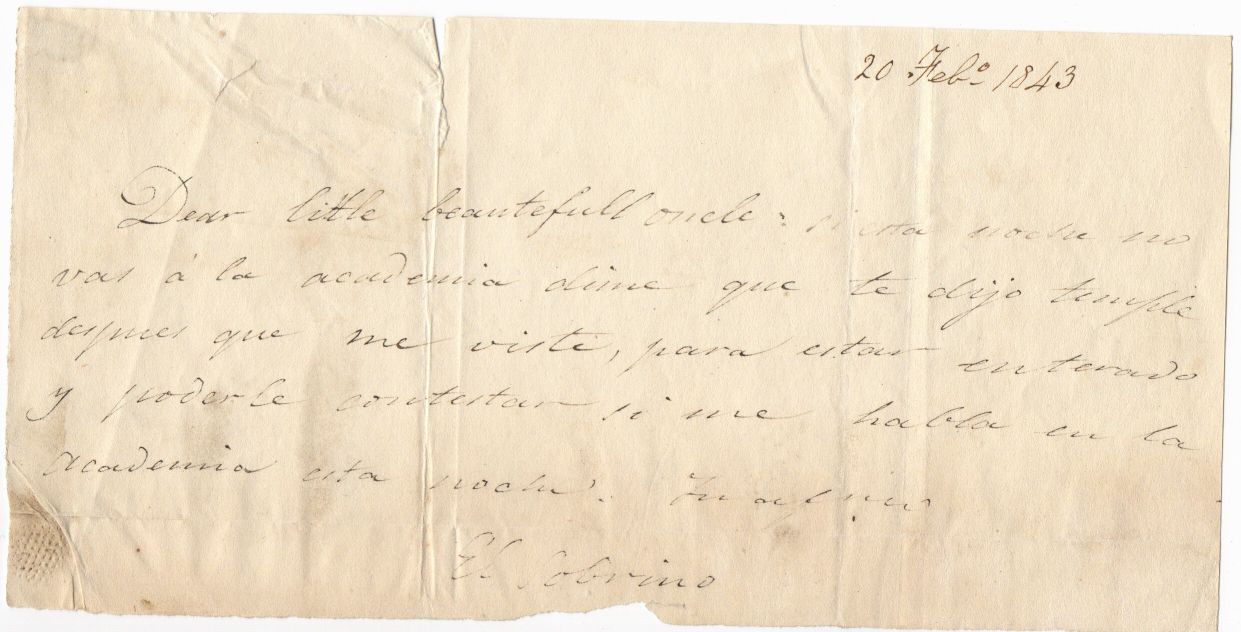 20 Feb.º 1843
Dear little beautefull oncle: si esta noche no
vas á la academia dime que te dijo temple
despues que me viste, para estar enterado
y poderle contestar si me habla en la
academia esta noche. Tu af.
El Sobrino